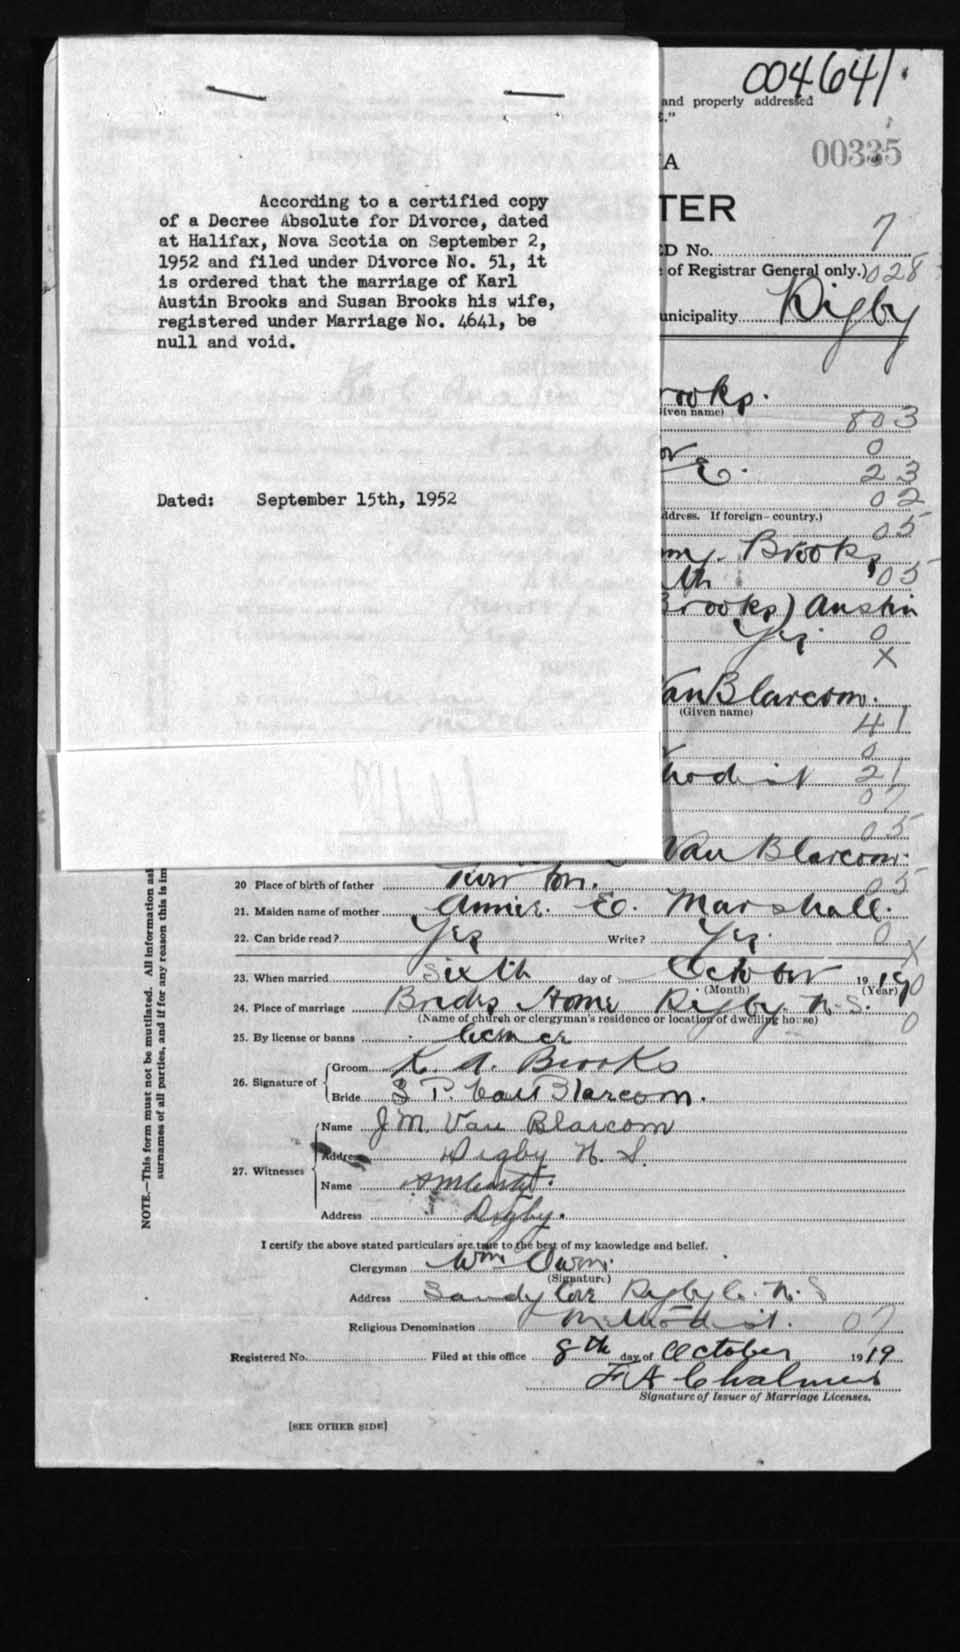 004641.
and properly addressed
."
00335
A
According to a certified copy
of a Decree Absolute for Divorce, dated
at Halifax, Nova Scotia on September 2,
1952 and filed under Divorce No. 51, it
is ordered that the marriage of Karl
Austin Brooks and Susan Brooks his wife,
registered under Marriage No. 4641, be
null and void.
Dated: September 15th, 1952
TER
D No. 7
of Registrar General only.) 028
unicipality Digby
rooks.
iven name)
803
0
E. 23
02
ddress. If foreign-country.)
05
my. Brooks
th 05
Brooks) Austin
Yes 0
X
Van Blarcom.
(Given name)
41
0
hodist 21
07
05
Van Blarcom.
20 Place of birth of father 05
21. Maiden name of mother Annie. E. Marshall.
22. Can bride read? Yes Write? Yes. 0
X
23. When married Sixth day of October 1919
(Month) (Year) 0
24. Place of marriage Brides Home Digby. N. S.
(Name of church or clergyman's residence or location of dwelling house) 0
25. By license or banns License
26. Signature of Groom K. A. Brooks
Bride S. P. Van Blarcom.
27. Witnesses Name J. M. Van Blarcom
Address Digby N. S.
Name
Address Digby.
I certify the above stated particulars are true to the best of my knowledge and belief.
Clergyman Wm Owen.
(Signature)
Address Sandy Cove Digby Co. N. S
Religious Denomination Methodist. 07
Registered No. Filed at this office 8th day of October 1919
F A Chalmers
Signature of Issuer of Marriage Licenses.
[SEE OTHER SIDE]
NOTE.—This form must not be mutilated. All information as
surnames of all parties, and if for any reason this is im